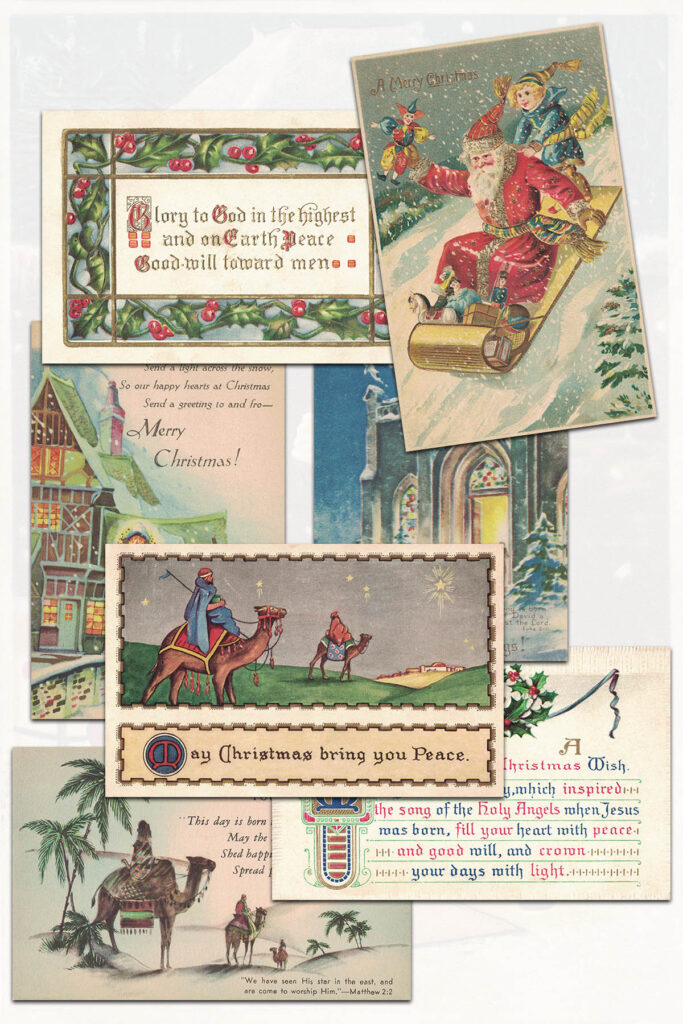 A Merry Christmas
Glory to God in the highest
and on Earth Peace
Good-will toward men
Send a light across the snow,
So our happy hearts at Christmas
Send a greeting to and fro—
Merry
Christmas!
is born
David a
the Lord.
May Christmas bring you Peace.
A
Christmas Wish.
y, which inspired
the song of the Holy Angels when Jesus
was born, fill your heart with peace
and good will, and crown
your days with light.
"This day is born
May the
Shed happi
Spread
"We have seen His star in the east, and
are come to worship Him."—Matthew 2:2